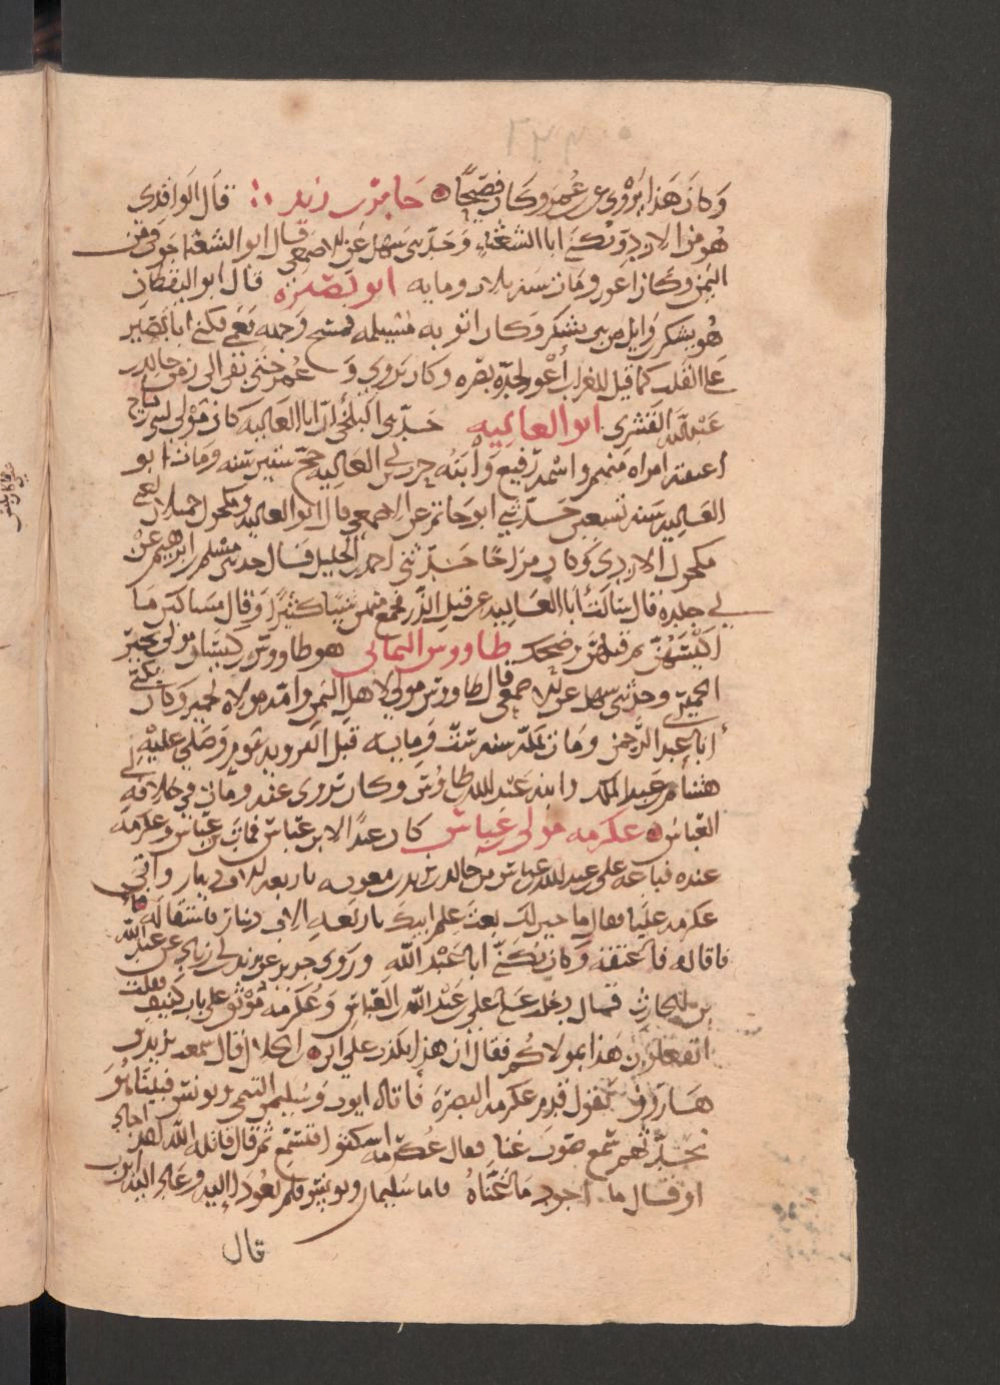 وكان هذا يروي عن عمر وكان فصيحًا ۞ جابر بن زيد ∴ قال الواقدي
هو من الازد ويكنى ابا الشعثاء وحدثني سهل عن الاصمعي قال ابو الشعثا جوفي من
اليمن وكان اعور ومات سنة ثلاث ومايه ابو نضره قال ابو اليقظان
هو يشكر وايل من بني يشكر وكان اتو به مسيلمه فمسح وجهه فعمي فكني ابا بصير
على القلب كما قيل للغراب أعور لحدة بصره وكان يروي و عمر حتى نفر الى زمن خالد بن
عبد الله القشرى ابو العاليه حدثني البلخي ان ابا العاليه كان مولى لبني رياح
اعتقته امراه منهم واسمه رفيع وابنه حرب بن ابي العاليه حج ستين سنه ومات ابو
العاليه سنه تسعين حدثني ابو حاتم عن الاصمعي قال ابو العاليه ومكحول جميلان يعني
مكحول الازدي وكان مزاحا حدثني احمد بن الخليل قال حدثني مسلم بن ابرهيم عن
ابي خلده قال سالت ابا العاليه عن قتل الذر فجمع منهن شيا كثيرًا وقال مساكين ما
اكيسهن ثم قتلهن وضحك طاووس اليماني هو طاووس بن كيسان مولى بحير
الحميري وحدثني سهل عن الاصمعي قال طاووس مولى لاهل اليمن وامه مولاه لحمير وكان يكنى
أبا عبد الرحمن ومات بمكه سنه ست ومايه قبل الترويه بيوم وصلى عليه
هشام بن عبد الملك وابنه عبد الله بن طاوس وكان يروى عنه ومات في خلافه ابي
العباس ۞ عكرمه مولى عباس كان عبدًا لابن عباس فمات بن عباس وعكرمه
عنده فباعه علي بن عبد الله بن عباس من خالد بن يزيد بن معويه باربعه الاف دينار وأتى
عكرمه عليا فقال ما خير لك بعت علم ابيك باربعه الاف دينار فاستقاله
فاقاله فأعتقه وكان يكنى ابا عبد الله وروى جرير عن يزيد بن ابي زياد عن عبد الله
بن الحارث قال دخلت على علي بن عبد الله بن العباس وعكرمه موثق على باب كنيف فقلت
اتفعلون هذا بمولاكم فقال ان هذا يكذب على ابي ۞ ابن الخلال قال سمعت يزيد بن
هارون يقول قدم عكرمه البصرة فاتاه ايوب وسليمن التيمي ويونس فبينا هو
يحدثهم سمع صوت غنا فقال عكرمه اسكتوا فنستمع ثم قال قاتله الله لقد اجاد
او قال ما اجود ما غناه فاما سليمان ويونس فلم يعودا اليه وعاد اليه ايوب
قال